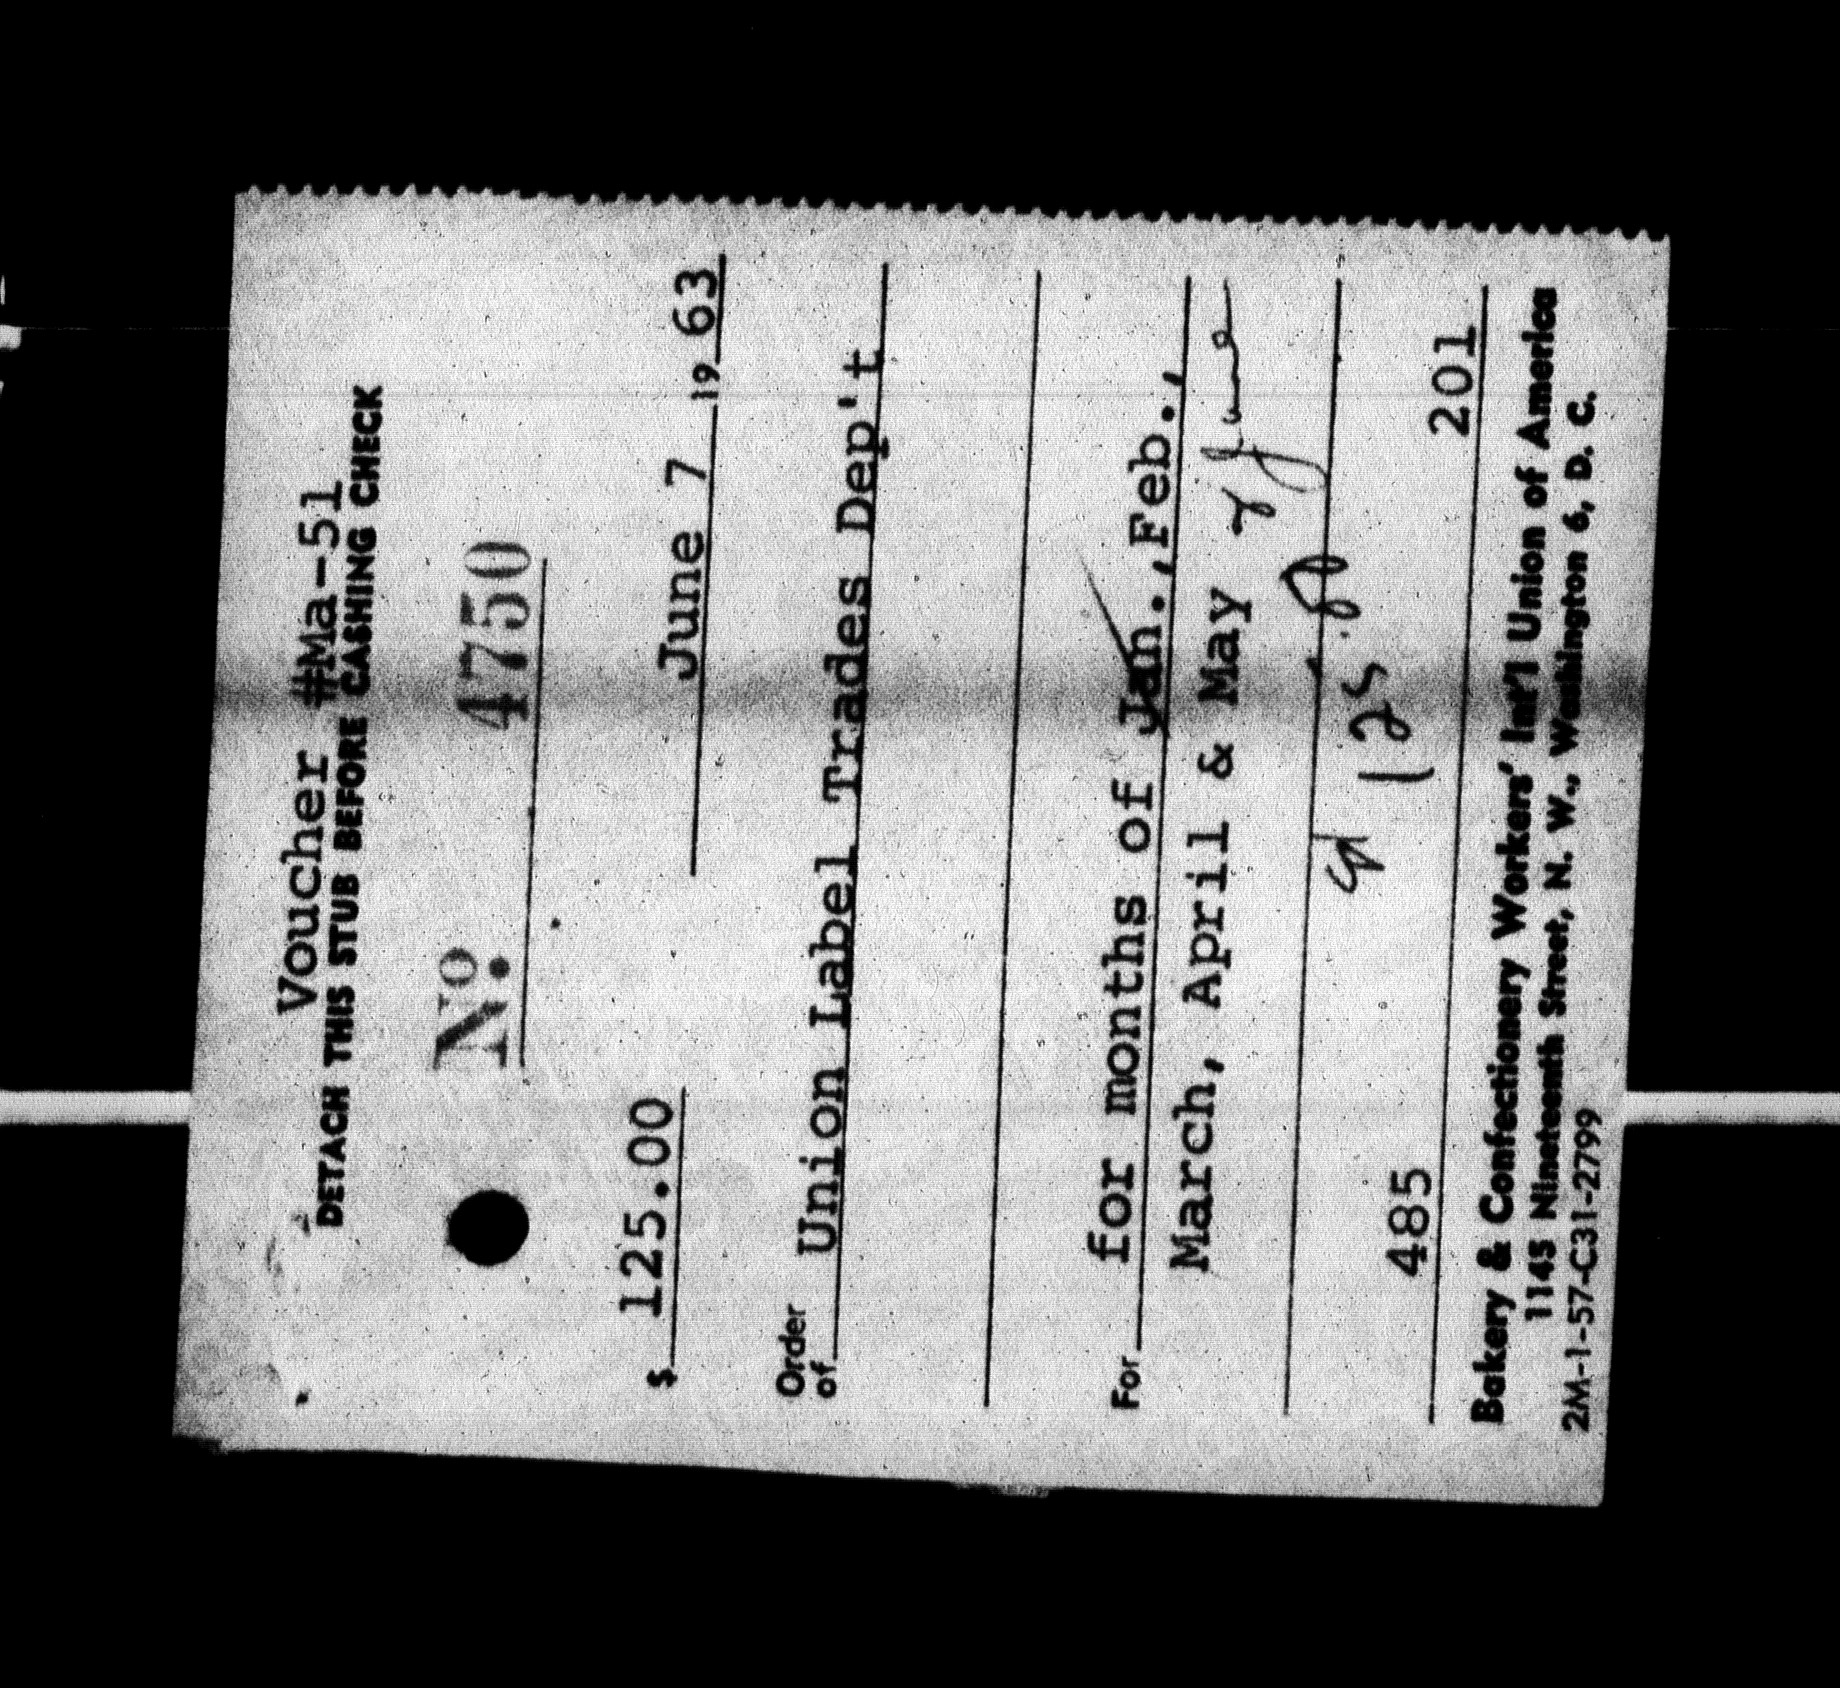 Voucher #Ma-51
DETACH THIS STUB BEFORE CASHING CHECK
No. 4750
$ 125.00 June 7 19 63
Order
of Union Label Trades Dep't
For for months of Jan.,Feb.,
March, April & May & June
125.
485 201
Bakery & Confectionery Workers' Int'l Union of America
1145 Nineteenth Street, N. W., Washington 6, D. C.
2M-1-57-C31-2799